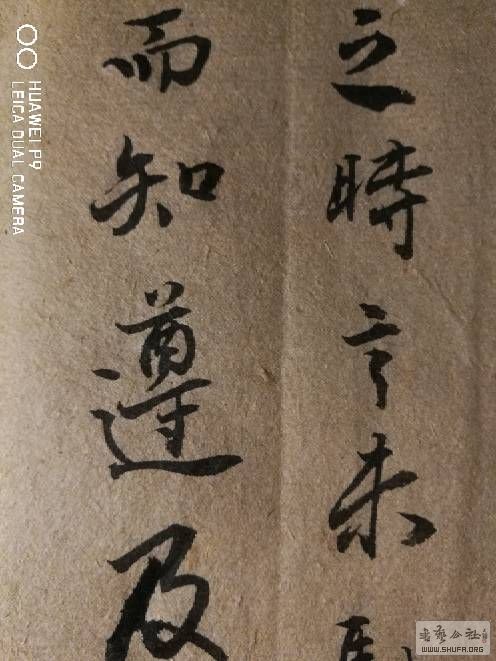 之時言未
而知遵及
HUAWEI P9
LEICA DUAL CAMERA
书艺公社
WWW.SHUFA.ORG